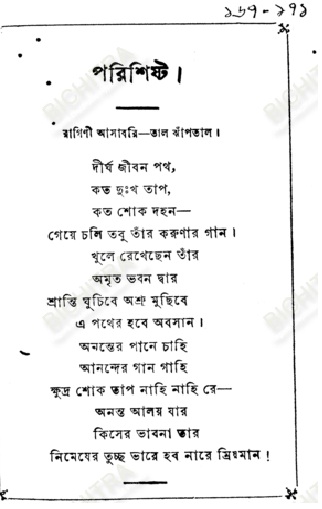 ১৬৭-১৭১
পরিশিষ্ট।
রাগিণী আসাবরি—তাল ঝাঁপতাল॥
দীর্ঘ জীবন পথ,
কত দুঃখ তাপ,
কত শোক দহন—
গেয়ে চলি তবু তাঁর করুণার গান।
খুলে রেখেছেন তাঁর
অমৃত ভবন দ্বার
শ্রান্তি ঘুচিবে অশ্রু মুছিবে
এ পথের হবে অবসান।
অনন্তের পানে চাহি
আনন্দের গান গাহি
ক্ষুদ্র শোক তাপ নাহি নাহি রে—
অনন্ত আলয় যার
কিসের ভাবনা তার
নিমেষের তুচ্ছ ভারে হব নারে ম্রিয়মান!
BICHITRA